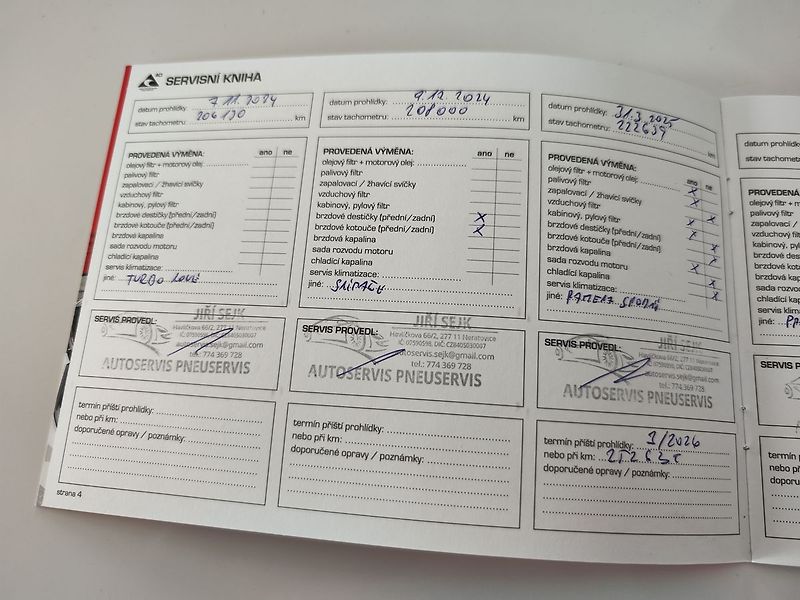 SERVISNÍ KNIHA
datum prohlídky: 7.11.2024
stav tachometru: 206130 km
PROVEDENÁ VÝMĚNA: ano ne
olejový filtr + motorový olej:
palivový filtr
zapalovací / žhavící svíčky
vzduchový filtr
kabinový, pylový filtr
brzdové destičky (přední/zadní)
brzdové kotouče (přední/zadní)
brzdová kapalina
sada rozvodu motoru
chladící kapalina
servis klimatizace:
jiné: TURBO NOVÉ
SERVIS PROVEDL:
JIŘÍ SEJK
Havlíčkova 66/2, 277 11 Neratovice
autoservis.sejk@gmail.com
tel.: 774 369 728
AUTOSERVIS PNEUSERVIS
termín příští prohlídky:
nebo při km:
doporučené opravy / poznámky:
strana 4
datum prohlídky: 9.12.2024
stav tachometru: 208000 km
PROVEDENÁ VÝMĚNA: ano ne
olejový filtr + motorový olej:
palivový filtr
zapalovací / žhavící svíčky
vzduchový filtr
kabinový, pylový filtr
brzdové destičky (přední/zadní) X
brzdové kotouče (přední/zadní) X
brzdová kapalina
sada rozvodu motoru
chladící kapalina
servis klimatizace:
jiné:
SERVIS PROVEDL:
JIŘÍ SEJK
Havlíčkova 66/2, 277 11 Neratovice
IČ: 07590598, DIČ: CZ8405030007
autoservis.sejk@gmail.com
tel.: 774 369 728
AUTOSERVIS PNEUSERVIS
termín příští prohlídky:
nebo při km:
doporučené opravy / poznámky:
datum prohlídky: 31.3.2025
stav tachometru: 222639 km
PROVEDENÁ VÝMĚNA: ano ne
olejový filtr + motorový olej: X
palivový filtr X
zapalovací / žhavící svíčky
vzduchový filtr X
kabinový, pylový filtr X
brzdové destičky (přední/zadní) X
brzdové kotouče (přední/zadní) X
brzdová kapalina X
sada rozvodu motoru X
chladící kapalina X
servis klimatizace: X
jiné: RAMENA SPODNÍ
SERVIS PROVEDL:
JIŘÍ SEJK
Havlíčkova 66/2, 277 11 Neratovice
IČ: 07590598, DIČ: CZ8405030007
autoservis.sejk@gmail.com
tel.: 774 369 728
AUTOSERVIS PNEUSERVIS
termín příští prohlídky: 3/2026
nebo při km:
doporučené opravy / poznámky:
datum prohlídky:
stav tachometru:
PROVEDENÁ
olejový filtr + mo
palivový filtr
zapalovací /
vzduchový filtr
kabinový, pylo
brzdové dest
brzdové koto
brzdová kap
sada rozvod
chladící kap
servis klima
jiné:
SERVIS P
termín p
nebo při
doporuč